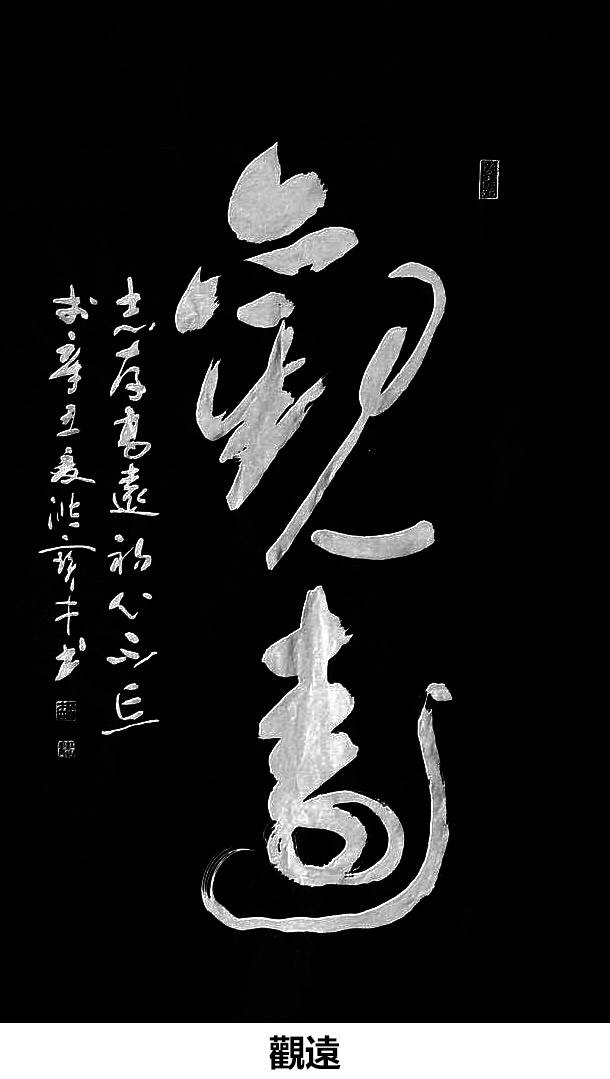 觀遠
志存高遠初心不忘
於辛丑夏
書
觀遠